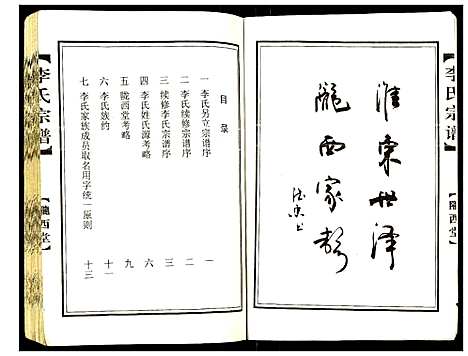 李氏宗譜
【隴西堂】
淮東世澤
隴西家聲
目录
一 李氏另立宗谱序 一
二 李氏续修宗谱序 二
三 续修李氏宗谱序 三
四 李氏姓氏源考略 六
五 陇西堂考略 九
六 李氏族约 十一
七 李氏家族成员取名用字统一原则 十三
李氏宗譜
【隴西堂】